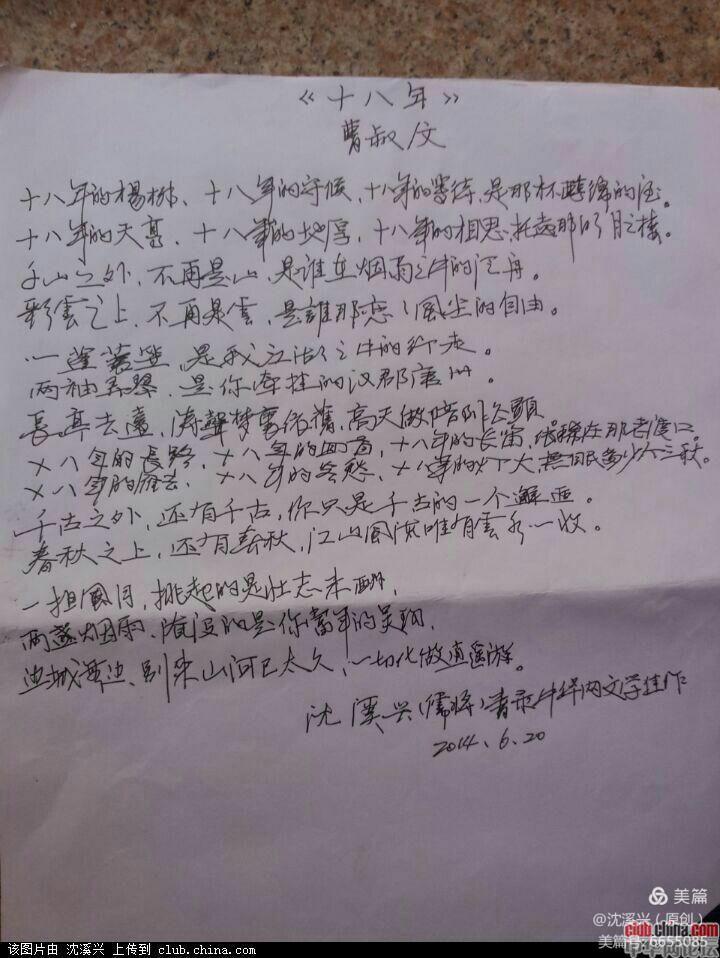 《十八年》
曹叔文
十八年的楊柳、十八年的守候,十八年的等待,是那杯醇徐的酒。
十八年的天高、十八年的地厚,十八年的相思,托起那的月之楼。
千山之外,不再是山,是谁在烟雨之中的江舟。
彩雲之上,不再是雲,是誰那恋風尘的自由。
一蓬蓑笠,是我江湖之中的行走。
两袖素琴,是你牵挂的汉郡唐州。
長亭去遠,涛聲梦里依舊,高天做陪
十八年的長路,十八年的回首,十八年的长笛,在那老渡口。
十八年的,十八年的愁,十八年的多少个三秋。
千古之外,还有千古,你只是千古的一个邂逅。
春秋之上,还有春秋,江山風流唯有雲水一收。
一担風月,挑起的是壮志未酬,
两盏烟雨、淹没的是你當年的吴钩,
边城潭边、别来山河已太久,一切化做逍遥游。
沈溪兴(儒将)书录中华网文学佳作
2014.6.20
美篇
@沈溪兴(原创)
美篇号:6655085
club.china.com
中华网论坛
该图片由 沈溪兴 上传到 club.china.com